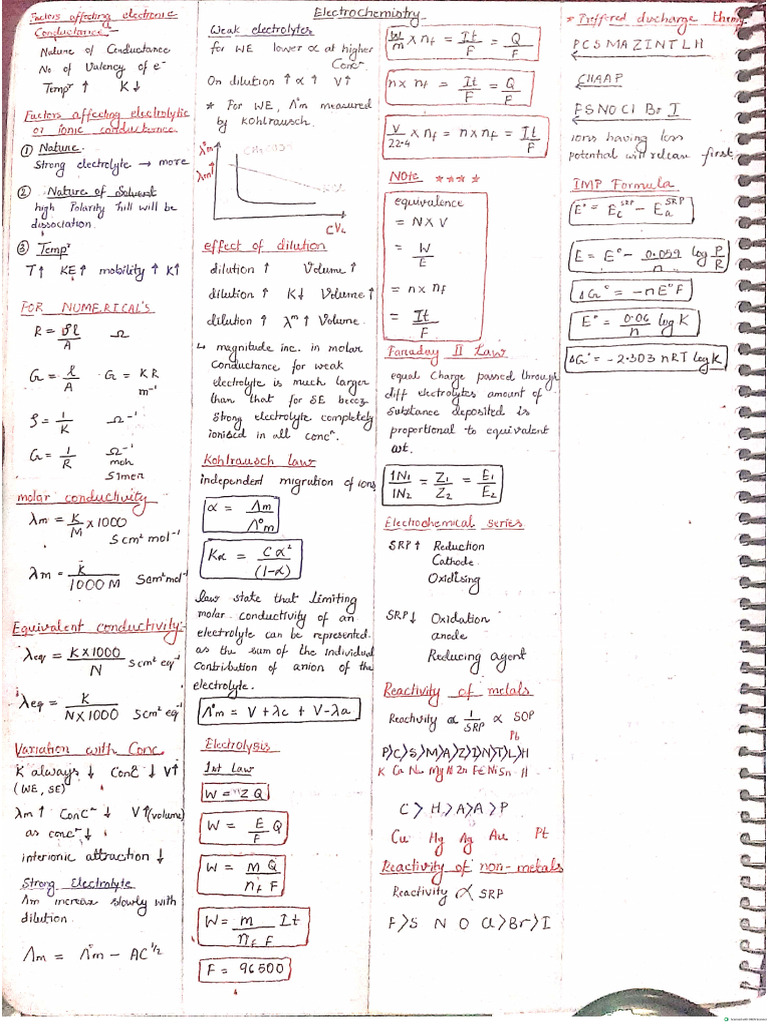 Electrochemistry
Factors affecting electronic
Conductance:-
Nature of Conductance
No of Valency of e⁻
Tempʳ ↑ K↓
Factors affecting electrolytic
or ionic conductance
① Nature
Strong electrolyte → more
② Nature of Solvent
high Polarity hill will be
dissociation.
③ Tempʳ
T↑ KE↑ mobility ↑ K↑
FOR NUMERICAL'S
R = ρl/A Ω
G = l/A G = KR m⁻¹
ρ = 1/K Ω⁻¹
G = 1/R Ω⁻¹
moh
Simen
molar conductivity
λm = K/M × 1000
S cm² mol⁻¹
λm = K/1000 M Scm²mol⁻¹
Equivalent conductivity:-
λeq = K×1000/N S cm² eq⁻¹
λeq = K/N×1000 S cm² eq⁻¹
Variation with Conc
K always ↓ Conc ↓ V↑
(WE, SE)
λm ↑ Concⁿ ↓ V↑(volume)
as concⁿ ↓
interionic attraction ↓
Strong Electrolyte
Λm increase slowly with
dilution.
Λm = Λ°m − AC^1/2
Weak electrolytes
for WE lower α at higher
Concⁿ.
On dilution ↑ α ↑ V↑
* For WE, Λ°m measured
by Kohlrausch.
effect of dilution
dilution ↑ Volume ↑
dilution ↑ K↓ Volume ↑
dilution ↑ λm ↑ Volume.
↳ magnitude inc. in molar
Conductance for weak
electrolyte is much larger
than that for SE becoz
Strong electrolyte completely
ionised in all concⁿ.
Kohlrausch law
independent migration of ions
α = Λm/Λ°m
Kα = Cα²/(1-α)
law state that limiting
molar conductivity of an
electrolyte can be represented
as the sum of the individual
Contribution of anion of the
electrolyte.
Λ°m = V + λc + V-λa
Electrolysis
1nt Law
W = ZQ
W = E/F Q
W = M Q/nf F
W = m/nf F It
F = 96500
W/m × nf = It/F = Q/F
n × nf = It/F = Q/F
V/22.4 × nf = n × nf = It/F
Note ****
equivalence
= N × V
= W/E
= n × nf
= It/F
Faraday II Law
equal Charge passed through
diff electrolytes amount of
Substance deposited is
proportional to equivalent
wt.
1N1/1N2 = Z1/Z2 = E1/E2
Electrochemical series
SRP↑ Reduction
Cathode
Oxidising
SRP↓ Oxidation
anode
Reducing agent
Reactivity of metals
Reactivity α 1/SRP α SOP
Pb
P>C>S>M>A>Z>I>N>T>L>H
C > H > A > A > P
Cu Hg Ag Au Pt
Reactivity of non-metals
Reactivity α SRP
F>S N O Cl>Br>I
* Preffered discharge theory
PCSMAZINTLH
CHAAP
FSNOCl Br I
ions having less
potential will relean first
IMP Formula
E° = Ec^SRP − Ea^SRP
E = E° − 0.059/n log P/R
ΔG° = −nE°F
E° = 0.06/n log K
ΔG° = −2.303 nRT log K